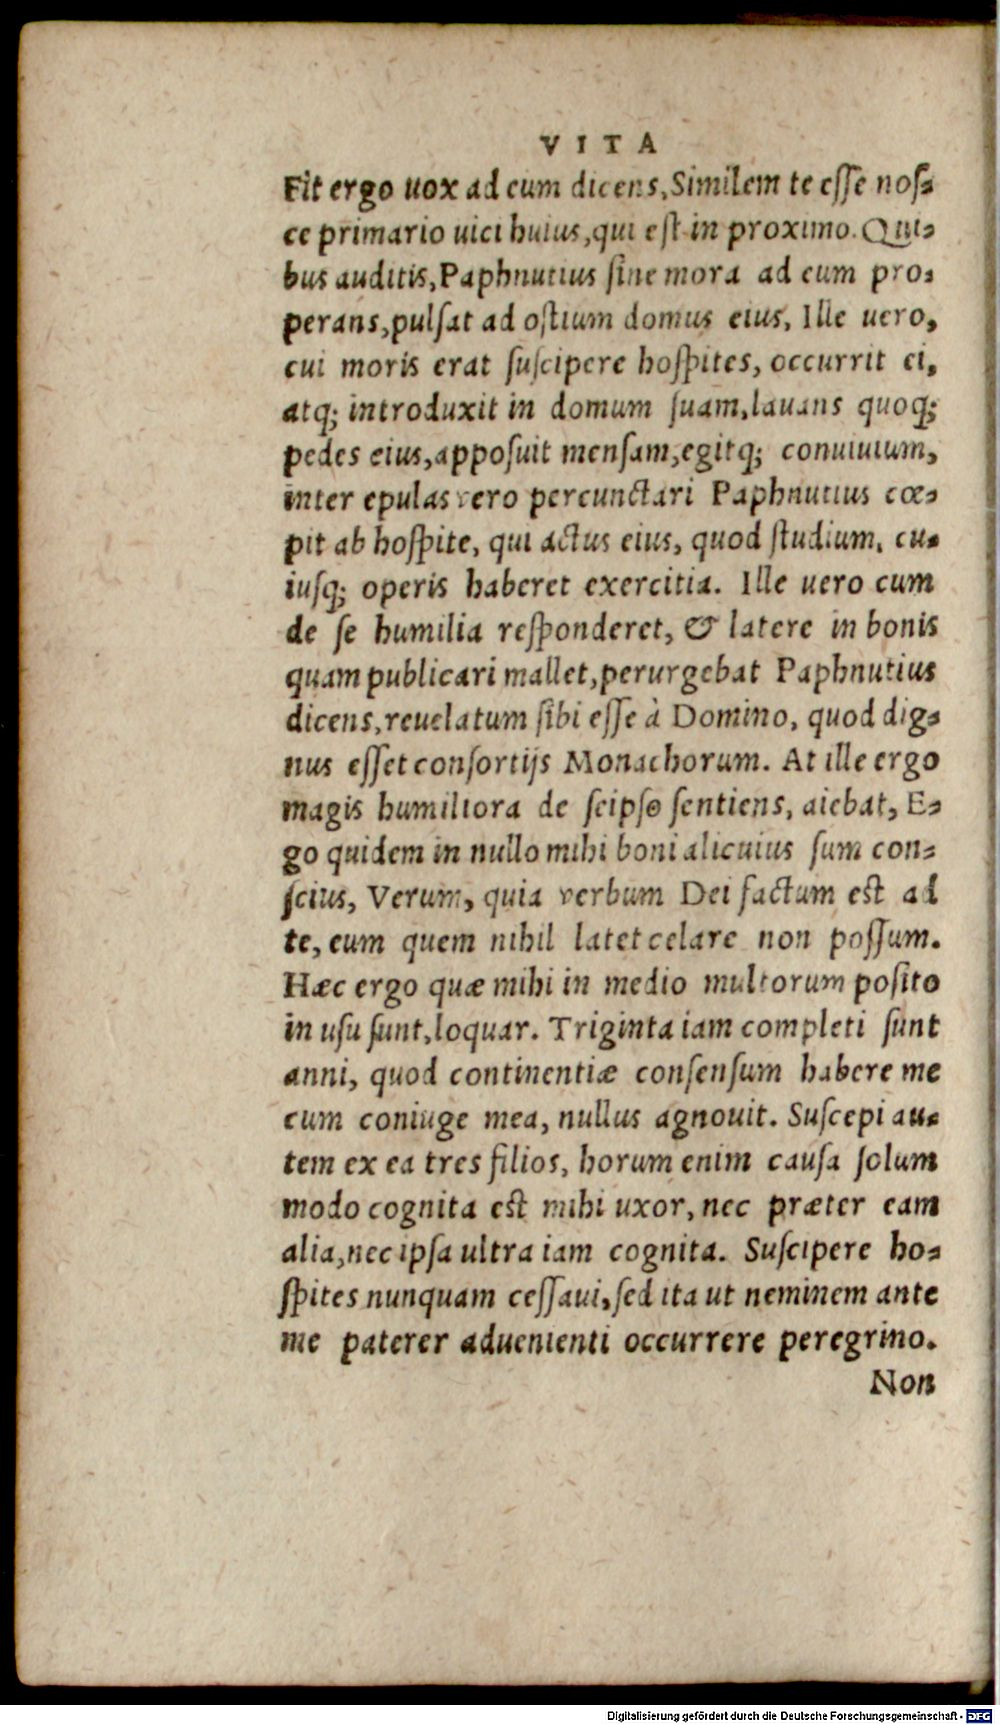 VITA
Fit ergo uox ad eum dicens, Similem te esse nos-
ce primario uici huius, qui est in proximo. Qui-
bus auditis, Paphnutius sine mora ad eum pro-
perans, pulsat ad ostium domus eius, Ille uero,
cui moris erat suscipere hospites, occurrit ei,
atq; introduxit in domum suam, lauans quoq;
pedes eius, apposuit mensam, egitq; conuiuium,
inter epulas vero percunctari Paphnutius cœ-
pit ab hospite, qui actus eius, quod studium, cu-
iusq; operis haberet exercitia. Ille uero cum
de se humilia responderet, & latere in bonis
quam publicari mallet, perurgebat Paphnutius
dicens, reuelatum sibi esse à Domino, quod dig-
nus esset consortijs Monachorum. At ille ergo
magis humiliora de seipso sentiens, aiebat, E-
go quidem in nullo mihi boni alicuius sum con-
scius, Verum, quia verbum Dei factum est ad
te, eum quem nihil latet celare non possum.
Hæc ergo quæ mihi in medio multorum posito
in usu sunt, loquar. Triginta iam completi sunt
anni, quod continentiæ consensum habere me
cum coniuge mea, nullus agnouit. Suscepi au-
tem ex ea tres filios, horum enim causa solum
modo cognita est mihi uxor, nec præter eam
alia, nec ipsa ultra iam cognita. Suscipere ho-
spites nunquam cessaui, sed ita ut neminem ante
me paterer aduenienti occurrere peregrino.
Non
Digitalisierung gefördert durch die Deutsche Forschungsgemeinschaft - DFG